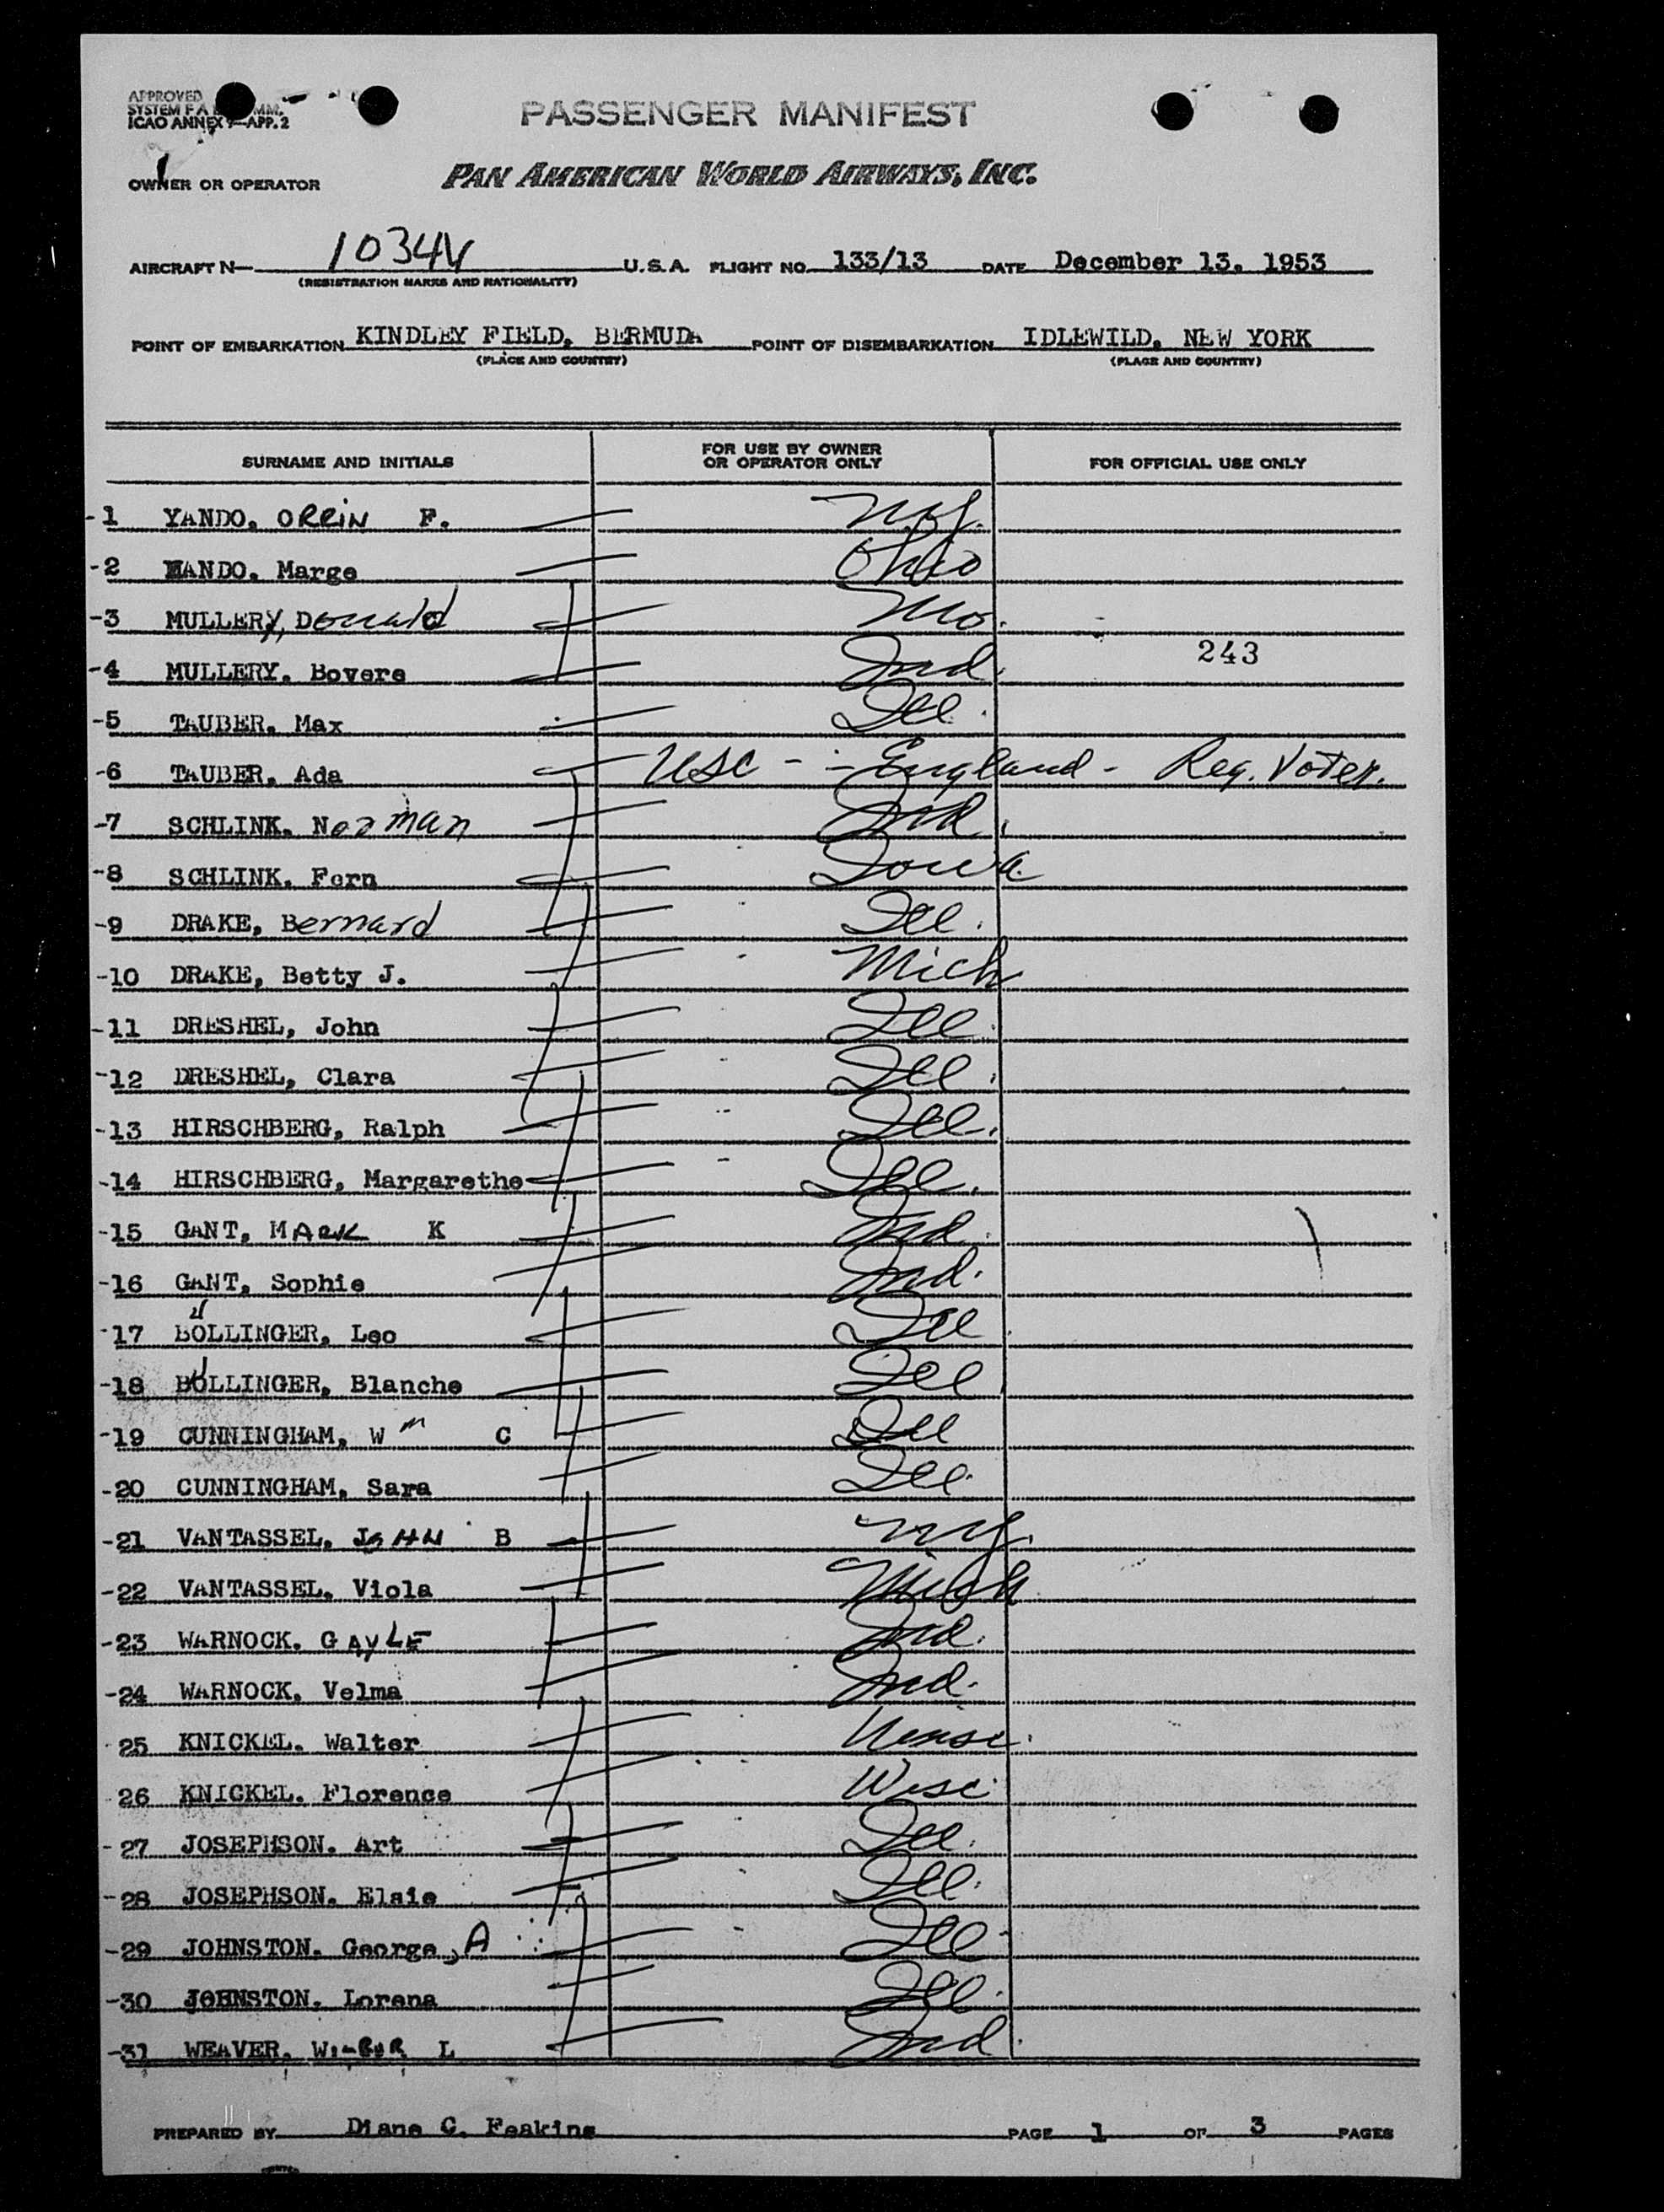 APPROVED
SYSTEM F A MM.
ICAO ANNEX 9—APP. 2
PASSENGER MANIFEST
OWNER OR OPERATOR PAN AMERICAN WORLD AIRWAYS, INC.
AIRCRAFT N— 1034V U.S.A. FLIGHT NO. 133/13 DATE December 13, 1953
(REGISTRATION MARKS AND NATIONALITY)
POINT OF EMBARKATION KINDLEY FIELD, BERMUDA POINT OF DISEMBARKATION IDLEWILD, NEW YORK
(PLACE AND COUNTRY) (PLACE AND COUNTRY)
SURNAME AND INITIALS FOR USE BY OWNER OR OPERATOR ONLY FOR OFFICIAL USE ONLY
-1 YANDO, ORRIN F. N.Y.
-2 YANDO, Marge Ohio
-3 MULLERY, Donald Mo.
243
-4 MULLERY, Bovere Ind.
-5 TAUBER, Max Ill.
-6 TAUBER, Ada USC - - England - Reg. Voter.
-7 SCHLINK, Norman Ind.
-8 SCHLINK, Fern Iowa
-9 DRAKE, Bernard Ill.
-10 DRAKE, Betty J. Mich
-11 DRESHEL, John Ill.
-12 DRESHEL, Clara Ill.
-13 HIRSCHBERG, Ralph Ill.
-14 HIRSCHBERG, Margarethe Ill.
-15 GANT, MARK K Ind.
-16 GANT, Sophie Ind.
u
-17 BOLLINGER, Leo Ill
u
-18 BOLLINGER, Blanche Ill
-19 CUNNINGHAM, Wm C Ill
-20 CUNNINGHAM, Sara Ill.
-21 VANTASSEL, JOHN B N.Y.
-22 VANTASSEL, Viola Mich
-23 WARNOCK, GAYLE Ind.
-24 WARNOCK, Velma Ind.
25 KNICKEL, Walter
26 KNICKEL, Florence Wisc.
-27 JOSEPHSON, Art Ill.
-28 JOSEPHSON, Elsie Ill.
-29 JOHNSTON, George, A Ill.
-30 JOHNSTON, Lorena Ill.
-31 WEAVER, WILBUR L Ind.
PREPARED BY Diane C. Feakins PAGE 1 OF 3 PAGES